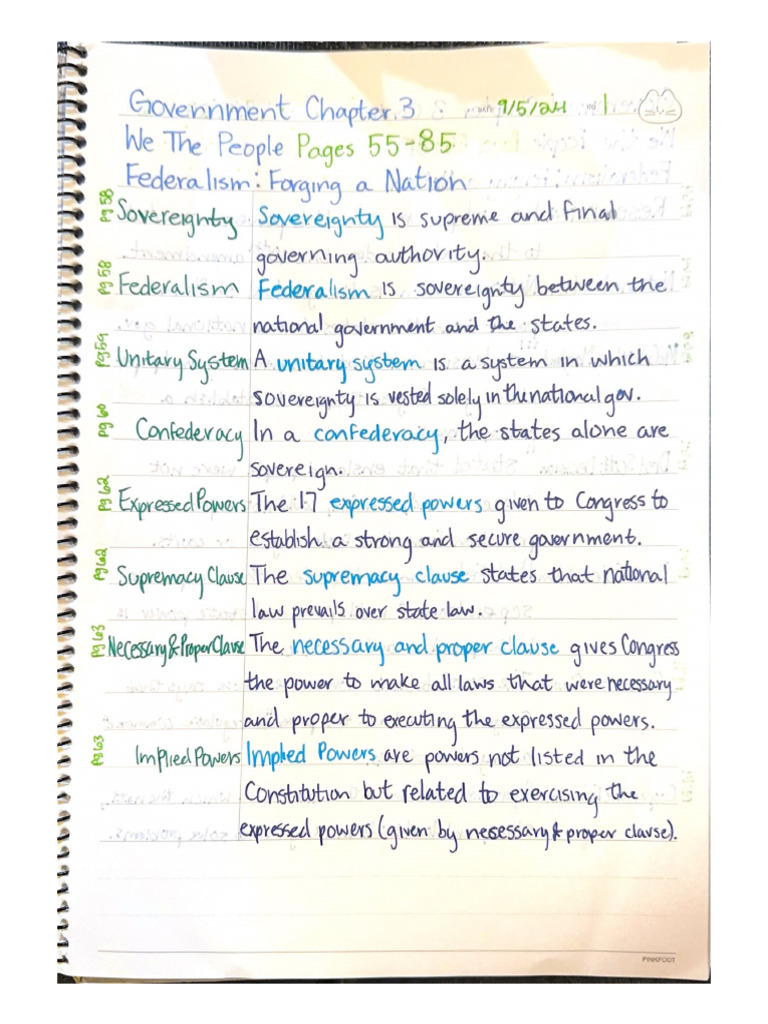 Government Chapter.3 9/5/2024 no 1
We The People Pages 55-85
Federalism: Forging a Nation
pg 58 Sovereignty Sovereignty is supreme and final
governing authority.
pg 58 Federalism Federalism is sovereignty between the
national government and the states.
pg 59 Unitary System A unitary system is a system in which
sovereignty is vested solely in the national gov.
pg 60 Confederacy In a confederacy, the states alone are
sovereign.
pg 62 Expressed Powers The 17 expressed powers given to Congress to
establish a strong and secure government.
pg 62 Supremacy Clause The supremacy clause states that national
law prevails over state law.
pg 63 Necessary & Proper Clause The necessary and proper clause gives Congress
the power to make all laws that were necessary
and proper to executing the expressed powers.
pg 63 Implied Powers Implied Powers are powers not listed in the
Constitution but related to exercising the
expressed powers (given by necessary & proper clause).
PINKFOOT